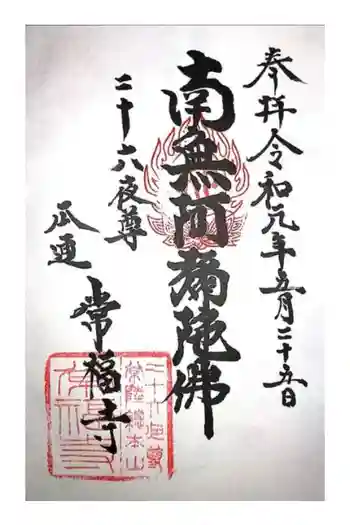 奉拝令和元年五月二十五日
南無阿弥陀佛
二十六夜尊
瓜連
常福寺
二十六夜尊
常陸總本山